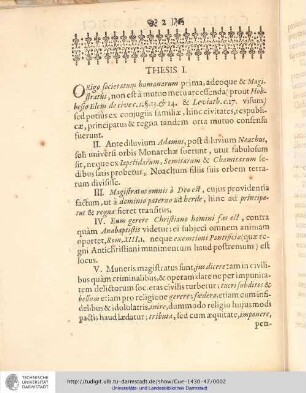 2
THESIS I.
ORigo societatum humanarum prima, adeoque & Magi-
stratûs, non est à mutuo metu arcessenda, prout Hob-
besio Elem. de cive c.1. §.2. & 14. & Leviath. c.17. visum;
sed potius ex conjugiis familiæ, hinc civitates, respubli-
cæ, principatus & regna tandem orta mutuo consensu
fuerunt.
II. Ante diluvium Adamus, post diluvium Noachus,
soli universi orbis Monarchæ fuerunt, utut fabulosum
sit, neque ex Iapetidarum, Semitarum & Chamitarum se-
dibus satis probetur, Noachum filiis suis orbem terra-
rum divisisse.
III. Magistratus omnis à Deo est, cujus providentia
factum, ut à dominio paterno ad herile, hinc ad principa-
tus & regna fieret transitus.
IV. Eum gerere Christiano homini fas est, contra
quàm Anabaptistis videtur; ei subjici omnem animam
oportet, Rom. XIII.1. neque exemtioni Pontificiæ (quæ re-
gni Antichristiani munimentum haud postremum) est
locus.
V. Muneris magistratus sunt, jus dicere tam in civili-
bus quàm criminalibus, & operam dare ne per impunita-
tem delictorum societas civilis turbetur; tueri subditos &
bellum etiam pro religione gerere; fœdera etiam cum infi-
delibus & idololatris, inire, dammodo religio hujusmodi
pactis haud lædatur; tributa, sed cum æquitate, imponere,
pen-
TECHNISCHE
UNIVERSITÄT
DARMSTADT
http://tudigit.ulb.tu-darmstadt.de/show/Gue-1430-47/0002
Universitäts- und Landesbibliothek Darmstadt